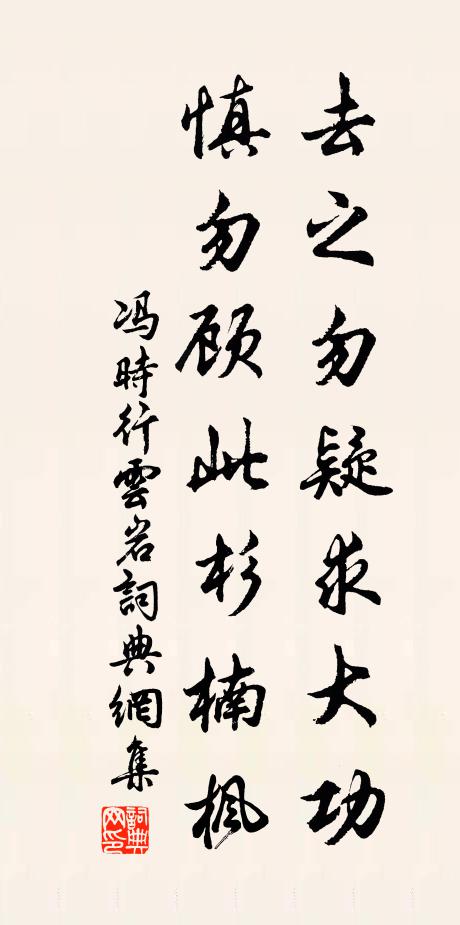 去之勿疑求大功
慎勿顾此杉楠枫
冯時行雲岩詞典網集
詞典网印